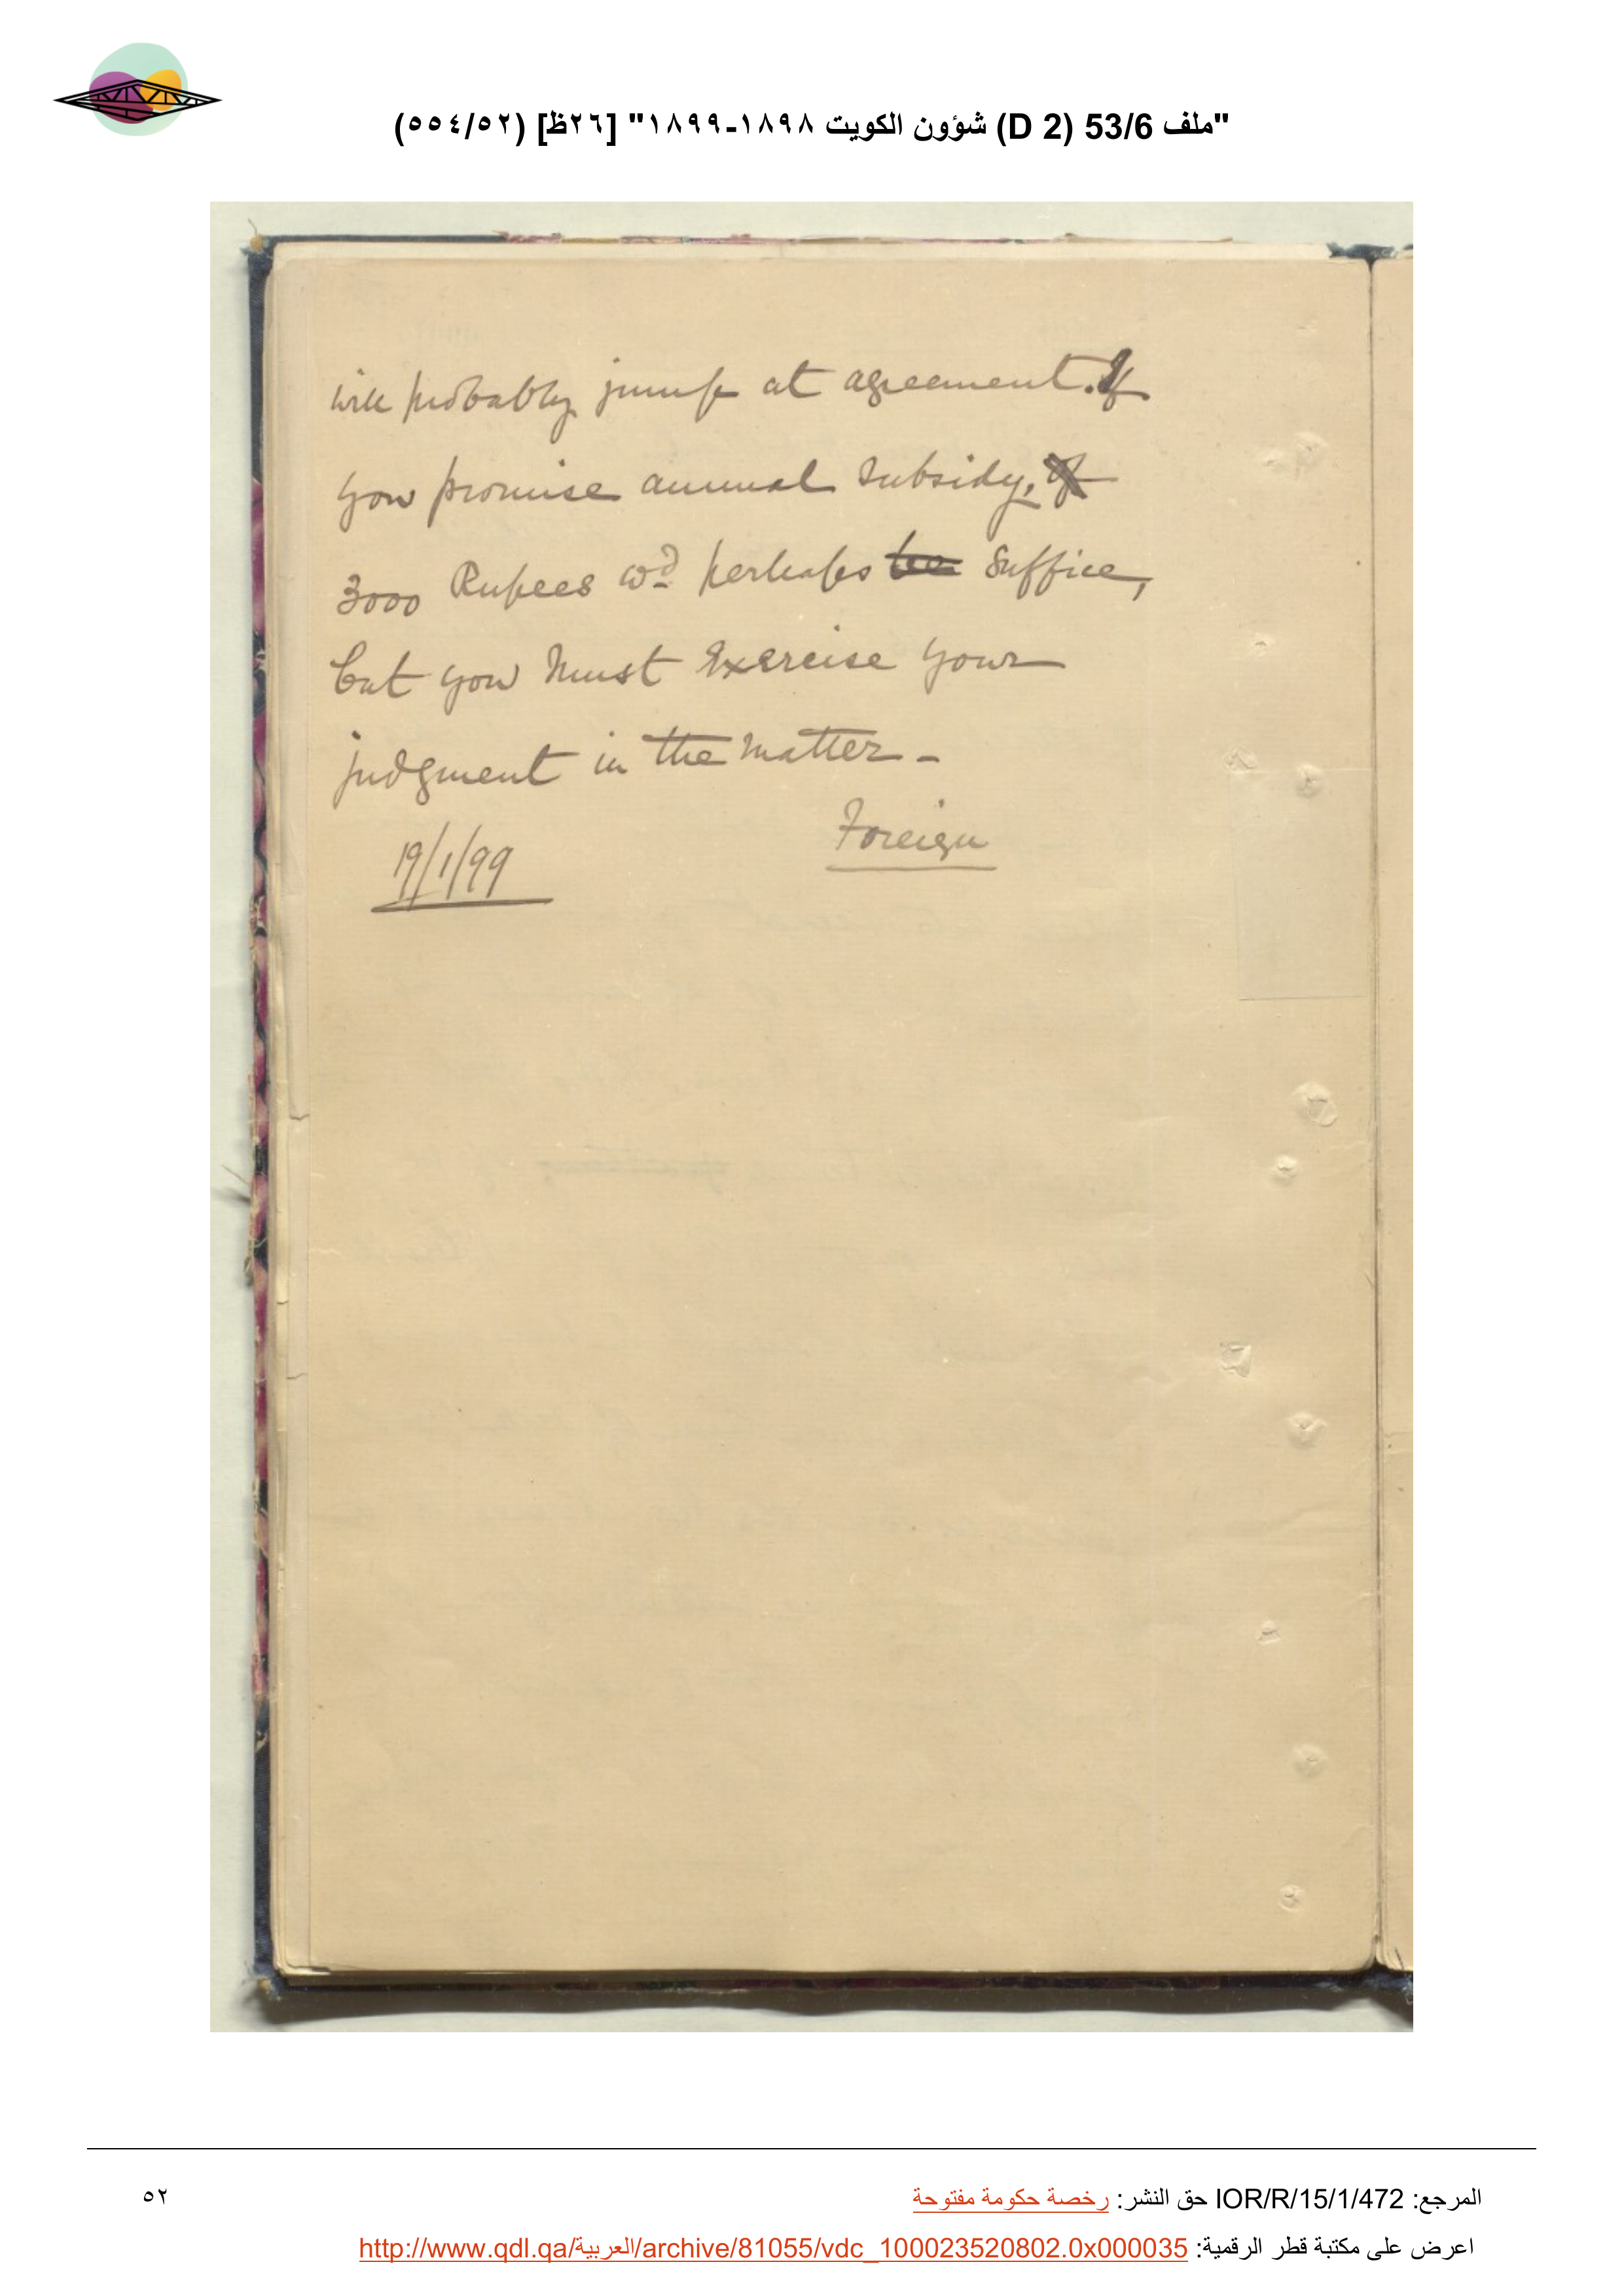 "ملف 53/6 (D 2) شؤون الكويت ١٨٩٨-١٨٩٩" [٢٦ظ] (٥٥٤/٥٢)
will probably jump at agreement. If
you promise annual subsidy, of
3000 Rupees wd perhaps be suffice,
but you must exercise your
judgment in the matter -
Foreign
19/1/99
المرجع: IOR/R/15/1/472 حق النشر: رخصة حكومة مفتوحة
٥٢
اعرض على مكتبة قطر الرقمية: http://www.qdl.qa/العربية/archive/81055/vdc_100023520802.0x000035